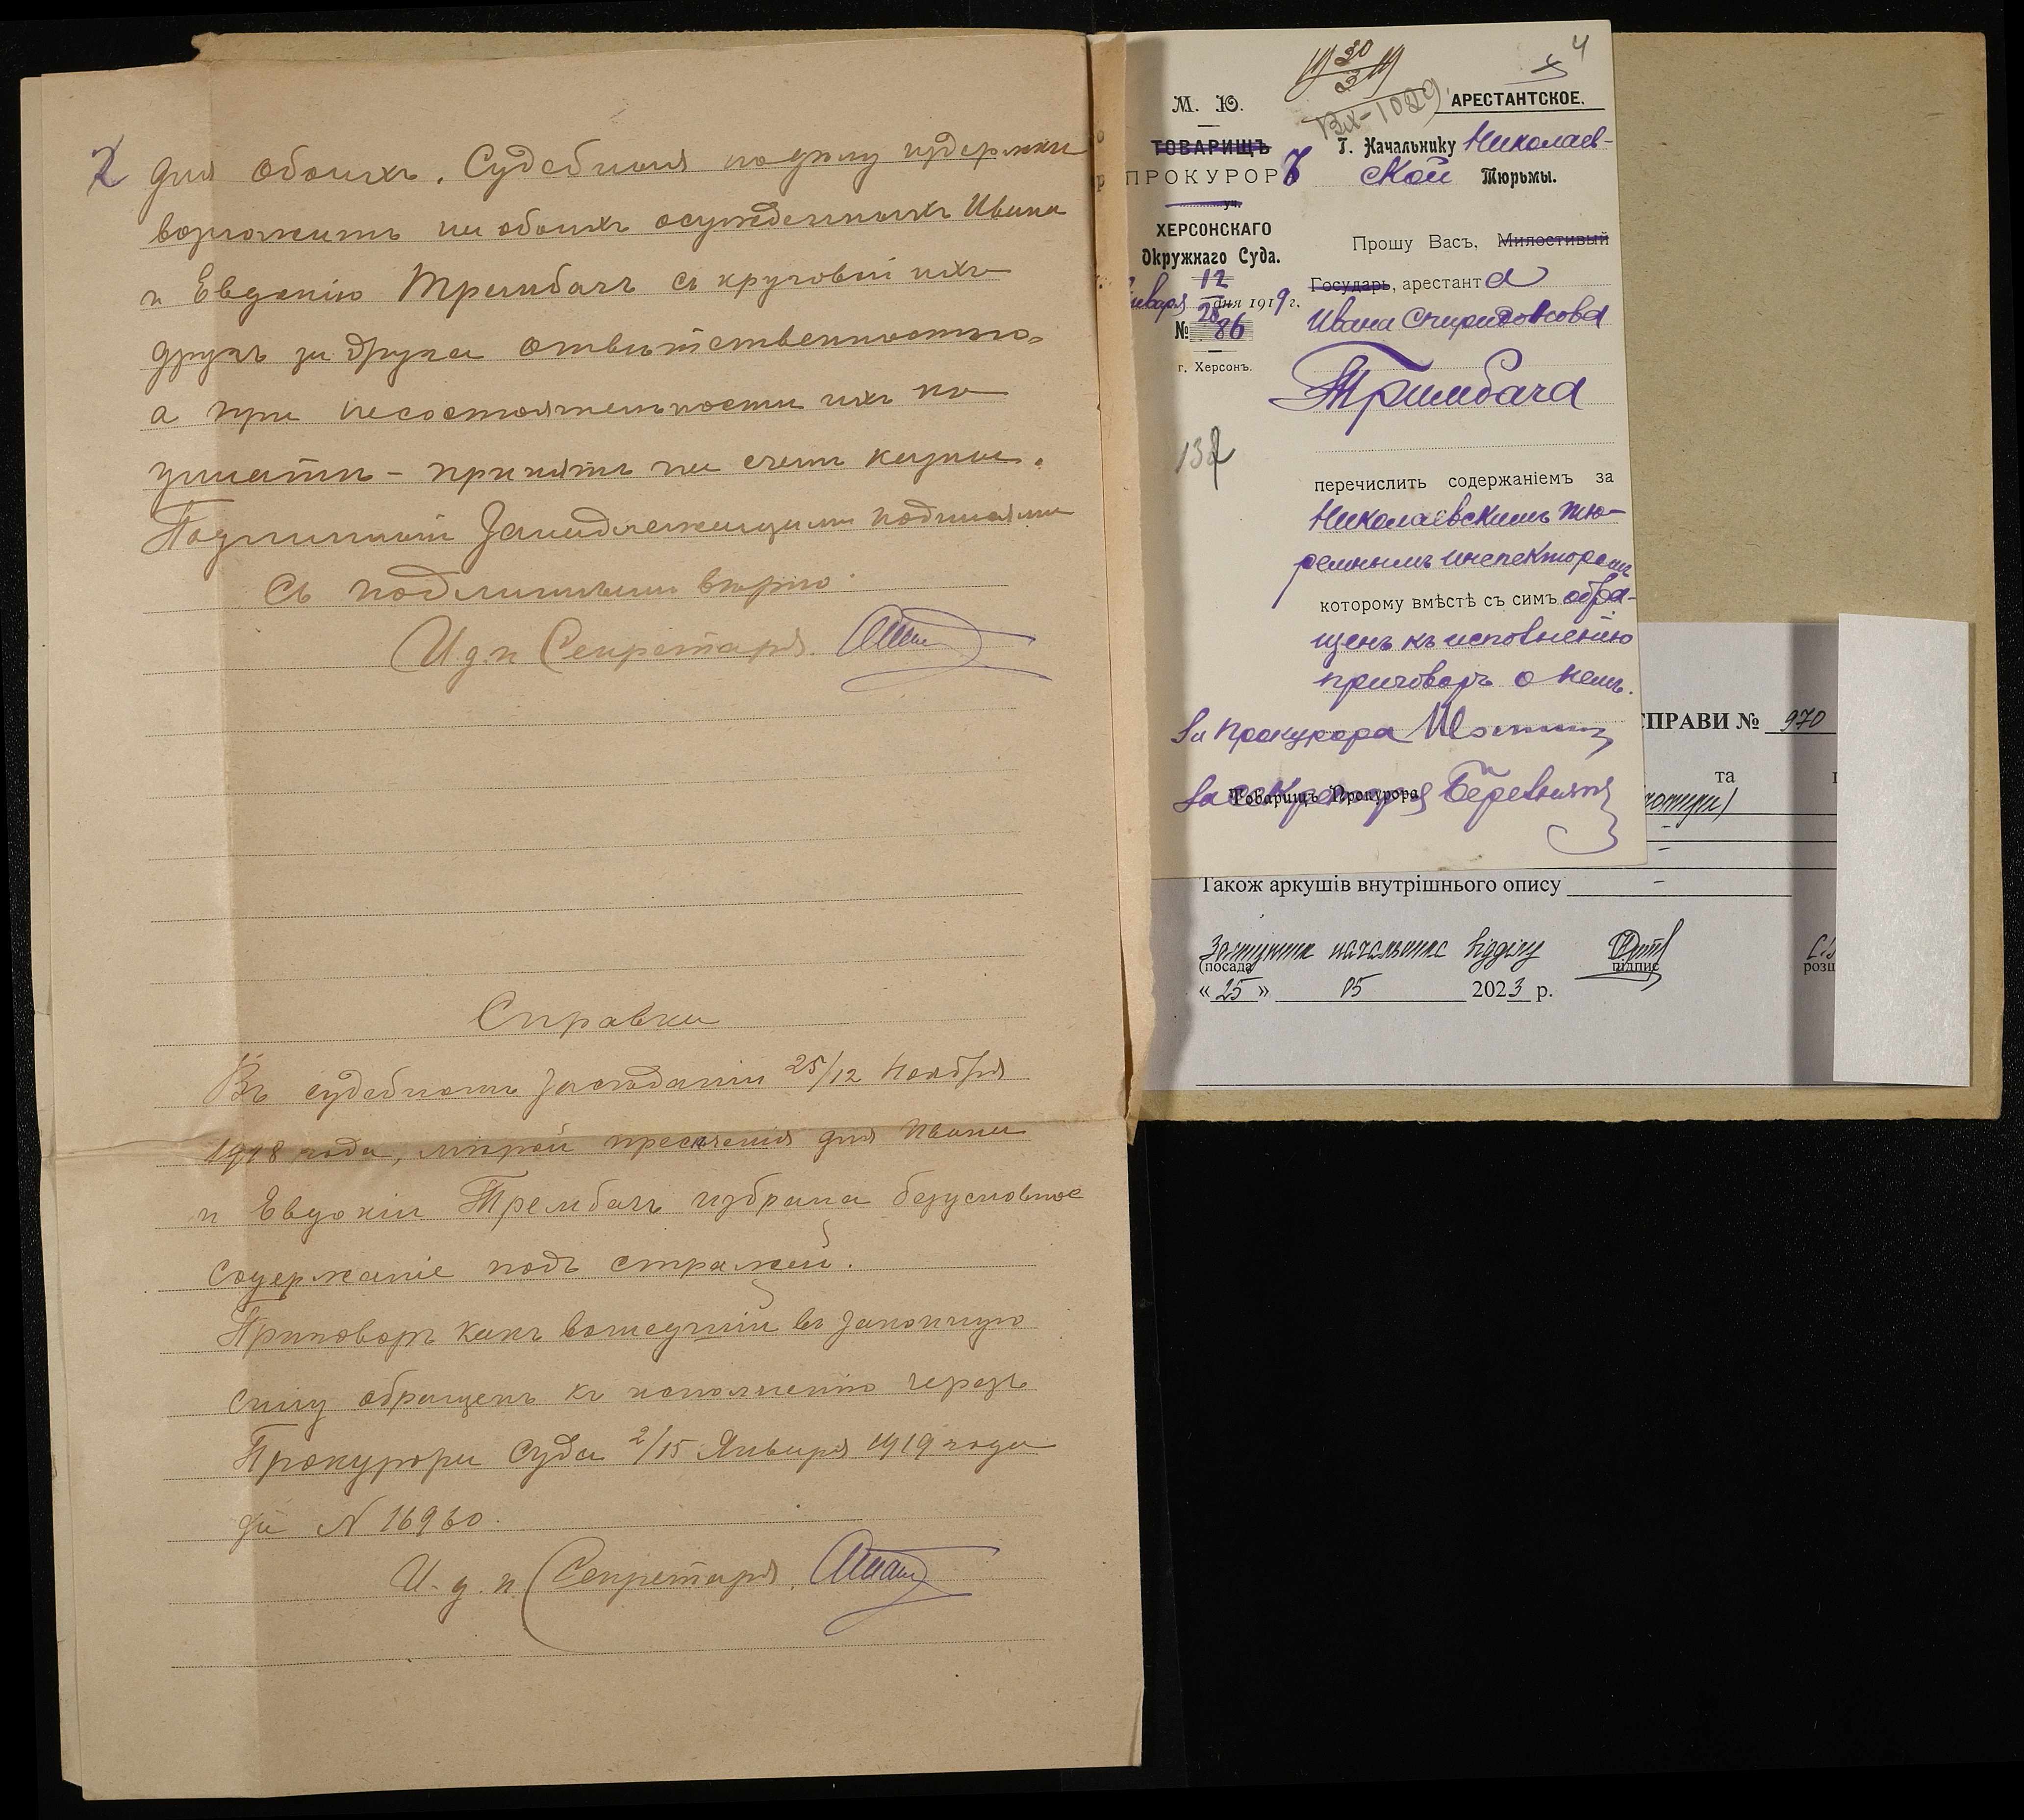 для обоихъ. Судебныя по дѣлу издержки
возложить на обоихъ осужденныхъ Ивана
и Евдокію Трембачъ съ круговой ихъ
другъ за друга отвѣтственностью,
а при несостоятельности ихъ къ
уплатѣ – принять на счетъ казны.
Подлинный за надлежащими подписями
Съ подлиннымъ вѣрно:
И. д. п. Секретаря
Справка
Въ судебномъ засѣданіи 25/12 Ноября
1918 года, мѣрой пресѣченія для Ивана
и Евдокіи Трембачъ избрана безусловное
содержаніе подъ стражей.
Приговоръ какъ вошедшій въ законную
силу обращенъ къ исполненію черезъ
Прокурора Суда 2/15 Января 1919 года
за N 16960.
И. д. п. Секретаря
4
19 30/3 19
Вх-1029
М. Ю.
АРЕСТАНТСКОЕ.
ТОВАРИЩЪ
ПРОКУРОРЪ
уч.
ХЕРСОНСКАГО
Окружнаго Суда.
Января 12/28 дня 1919 г.
№ 86
г. Херсонъ.
Г. Начальнику Николаев-
ской Тюрьмы.
Прошу Васъ, Милостивый
Государь, арестанта
Ивана Спиридонова
Тримбача
перечислить содержаніемъ за
Николаевскимъ тю-
ремнымъ инспекторомъ
которому вмѣстѣ съ симъ обра-
щенъ къ исполненію
приговоръ о немъ.
За Прокурора
Товарищъ Прокурора
За секретаря
СПРАВИ № 970
та
Також аркушів внутрішнього опису -
Заступник начальника відділу
(посада
підпис
розш
« 25 » 05 2023 р.